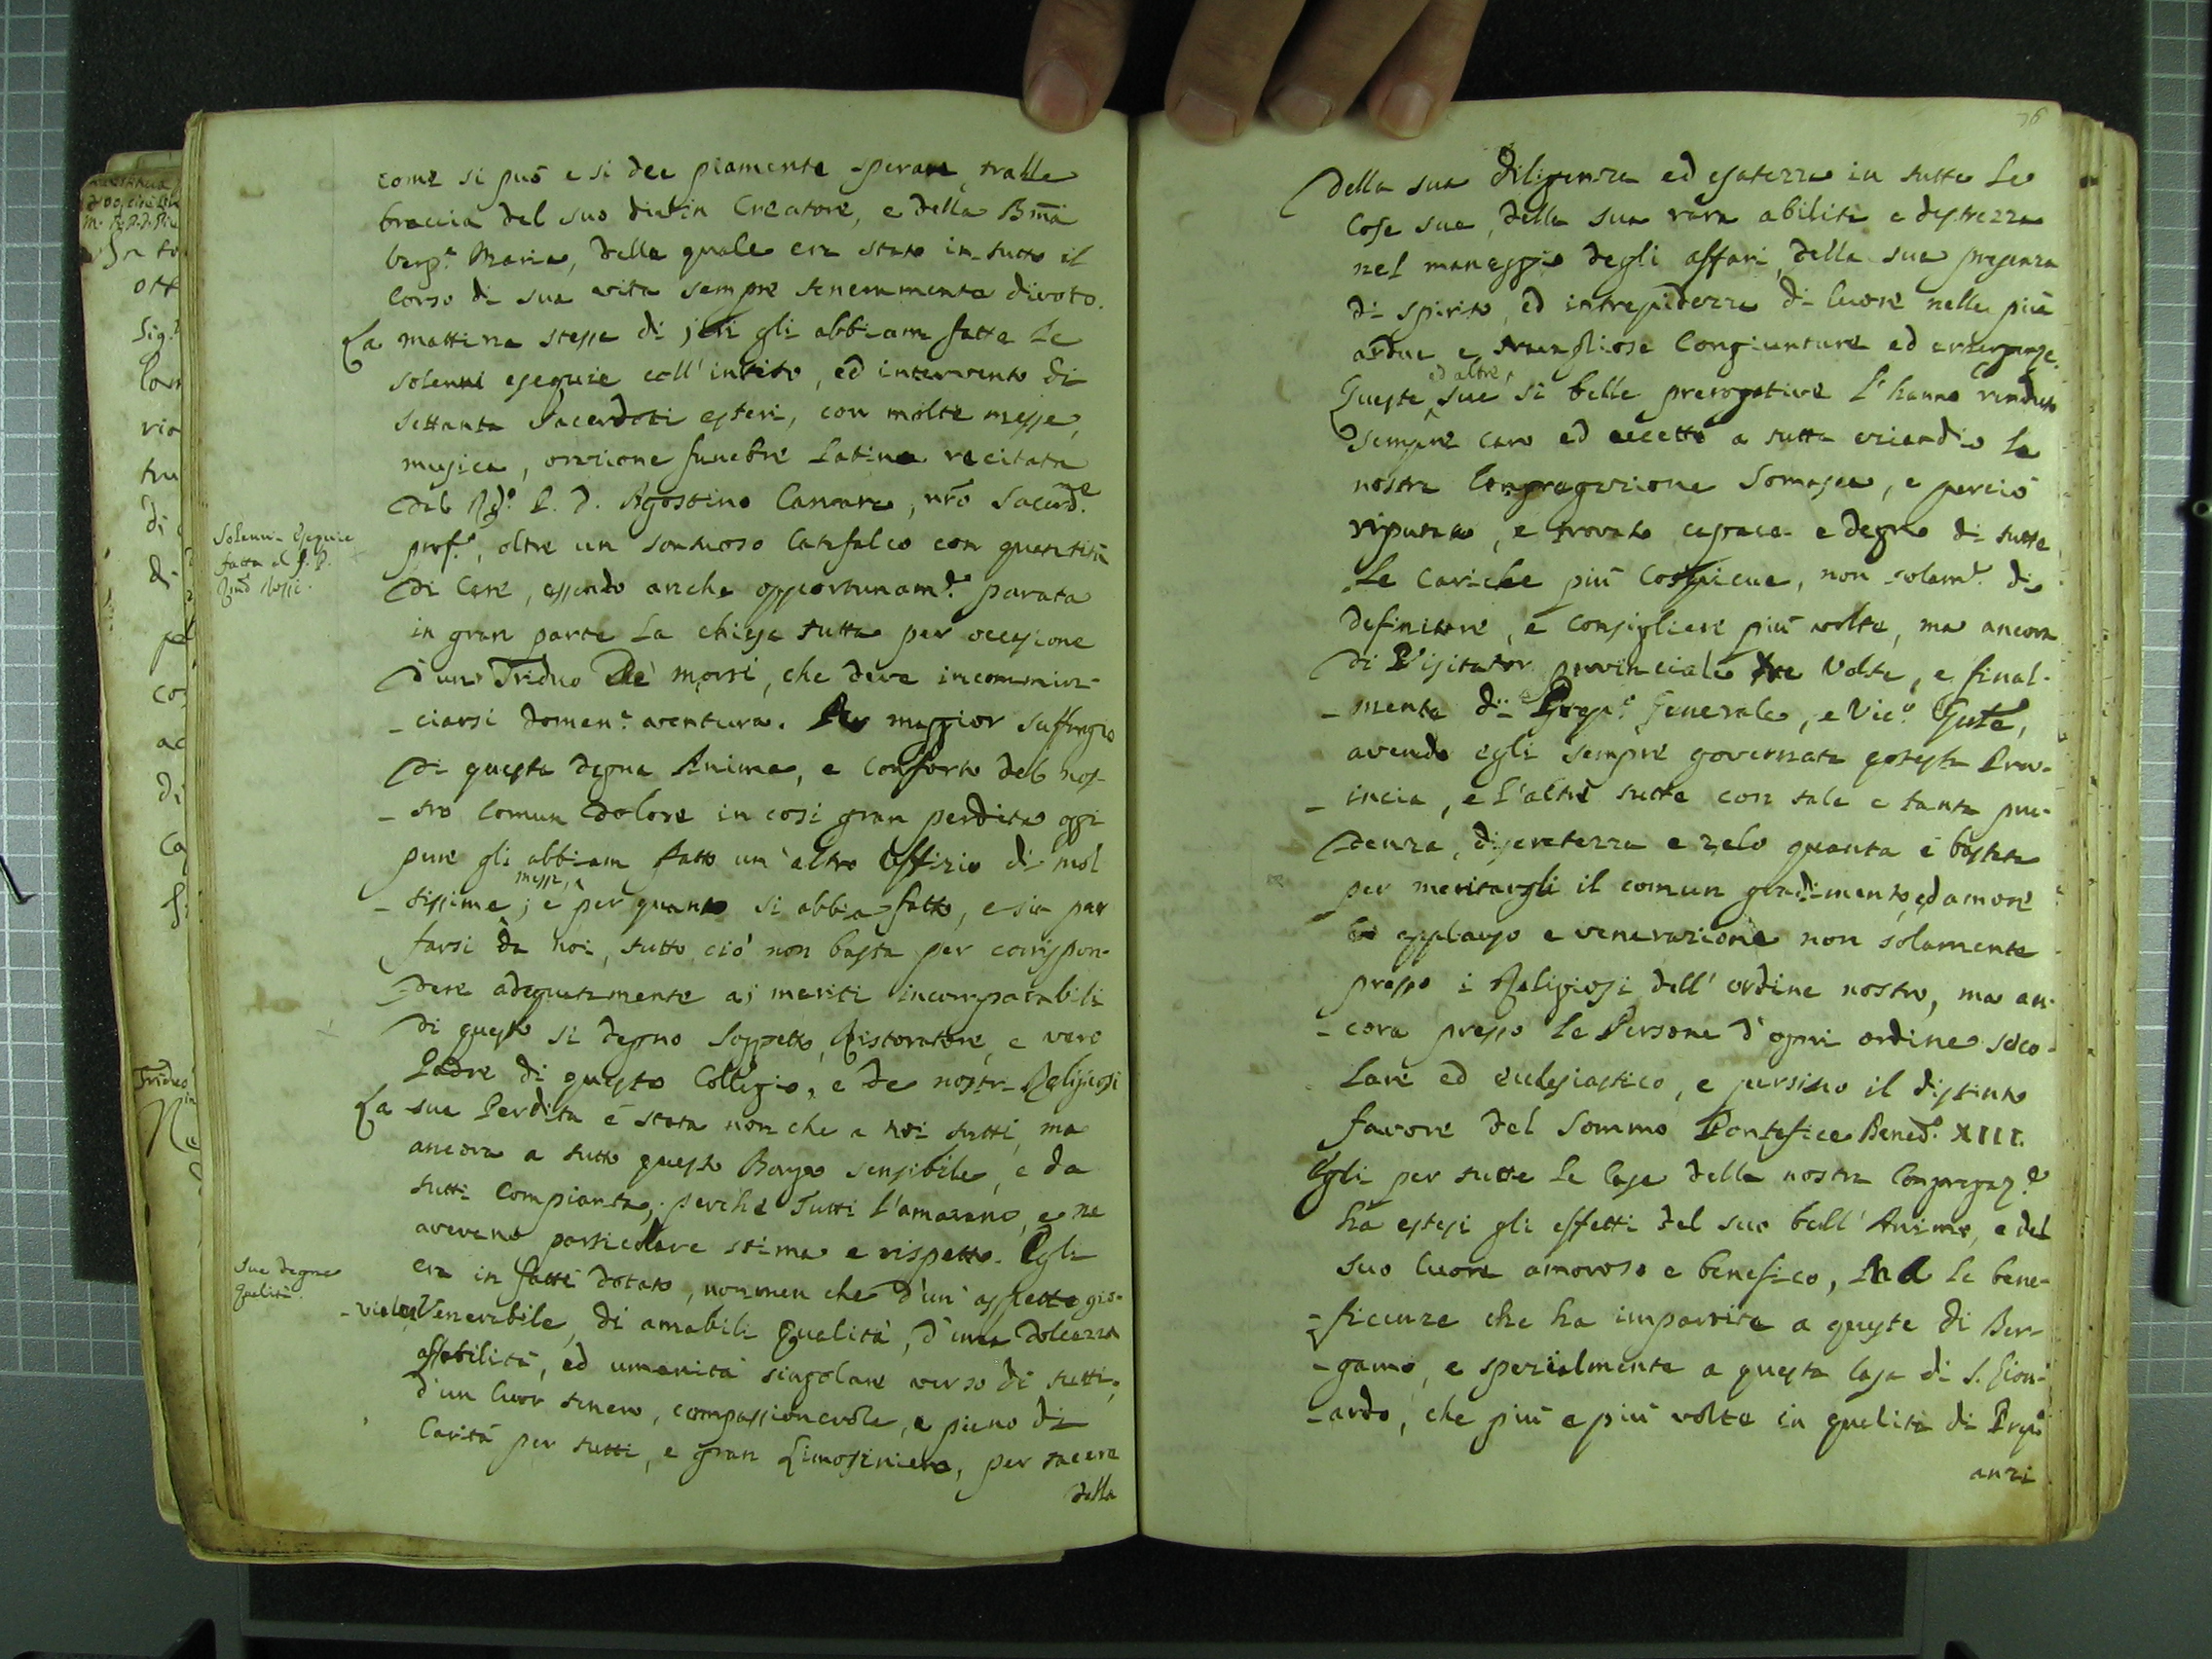 come si può e si dee piamente sperare, tralle
braccia del suo divin Creatore, e della Bma
Verg.e Maria, della quale era stato in tutto il
Corso di sua vita sempre teneramente divoto.
La mattina stessa di jeri gli abbiam fatte le
solenni esequie coll'invito, ed intervento di
settanta Sacerdoti esteri, con molte messe,
musica, orazione funebre Latina recitata
dal Rdo. P. D. Agostino Carrara, nro Sacerd.e
prof.o, oltre un sontuoso Catafalco con quantità
di Cere, essendo anche opportunam.e parata
in gran parte la chiesa tutta per occasione
d'un Triduo De' morti, che deve incomin-
-ciarsi domen.a ventura. A maggior suffragio
di questa degna Anima, e conforto del nos-
-tro comun dolore in così gran perdita oggi
pure gli abbiam fatto un'altro Offizio di mol
-tissime messe, ; e per quanto si abbia fatto, e sia per
farsi da noi, tutto ciò non basta per corrispon-
-dere adeguatamente ai meriti incomparabili
di questo si degno Soggetto, Ristoratore, e vero
Padre di questo Collegio, e de nostri Religiosi
La sua Perdita è stata non che a noi tutti, ma
ancora a tutto questo Borgo sensibile, e da
tutti Compianta, perchè Tutti l'amavano, e ne
avevano particolare stima e rispetto. Egli
era in fatti dotato, nonmen che d'un' aspetto gio-
-viale, Venerabile, di amabili Qualità, d'una dolcezza
affabilità, ed umanità singolare verso di tutti,
d'un Cuor tenero, compassionevole, e pieno di
Carità per tutti, e gran Limosiniere, per tacere
della
Solenni Esequie
fatte al P. D.
Rossi.
Sue degne
Qualità.
Triduo
76
Della sua diligenza ed esatezza in tutte le
Cose sue, della sua rara abilità e destrezza
nel maneggio degli affari, della sua presenza
di spirito, ed intrepidezza di Cuore nelle più
ardue e travagliose Congiunture ed emergenze.
Queste ed altre sue si belle prerogative l'hanno renduto
sempre caro ed accetto a tutta la
nostra Congregazione Somasca, e perciò
riputato, e trovato capace e degno di tutte
le Cariche più Cospicue, non solam.e di
Definitore, e Consigliere più volte, ma ancora
di Visitator provinciale tre Volte, e final-
-mente di Prep.o Generale, e Vic.o Gnle,
avendo egli sempre governata cotesta Prov-
-incia, e l'altre tutte con tale e tanta pru-
-denza, discretezza e zelo quanta è bastata
per meritargli il comun gradimento, ed amore
applauso e venerazione non solamente
presso i Religiosi dell'ordine nostro, ma an-
-cora presso le Persone d'ogni ordine seco-
lare ed ecclesiastico, e persino il distinto
favore del Sommo Pontefice Bened.o XIII.
Egli per tutte le Case della nostra Congregaz.e
ha estesi gli effetti del suo bell'Animo, e del
suo Cuore amoroso e benefico, Ma le bene-
-ficenze che ha impartite a queste di Ber-
-gamo, e spezialmente a questa Casa di S. Lion-
-ardo, che più e più volte in qualità di Prep.o
anzi